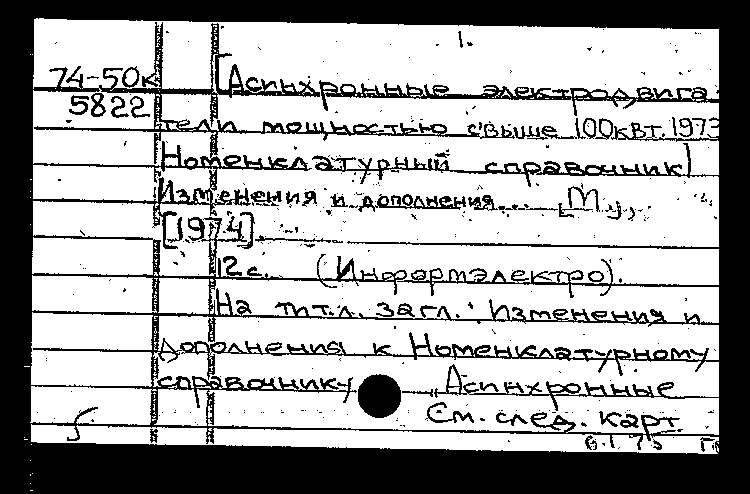 1.
74-50к [Асинхронные электродвига-
5822 тели мощностью свыше 100квт. 1973
Номенклатурный справочник]
Изменения и дополнения... [М.,
[1974].
12с. (Информэлектро).
На тит.л. загл.: Изменения и
дополнения к Номенклатурному
справочнику „Асинхронные
См. след. карт.
6.1.75